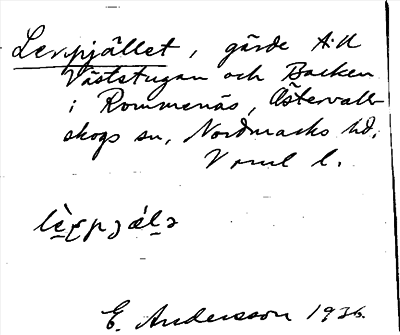 Lerpjället, gärde till
Väststugan och Backen
i Rommenäs, Östervall-
skogs sn, Nordmarks hd,
Vrml l.
E. Andersson 1936.